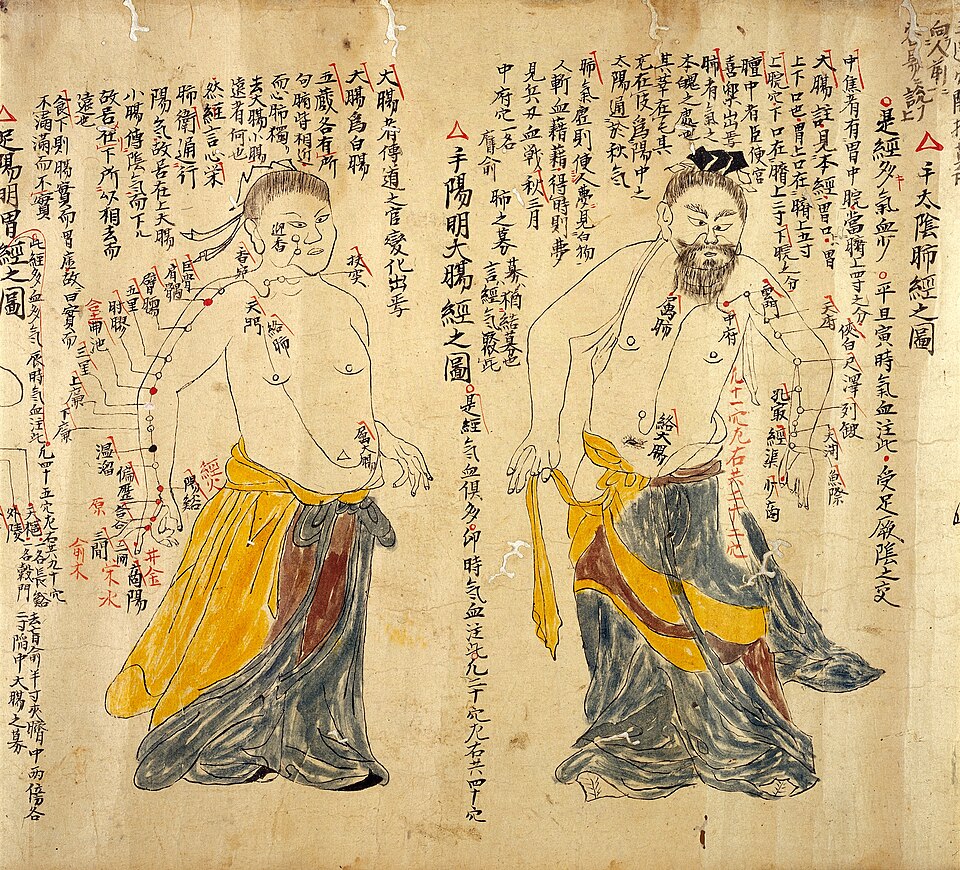 向人前
手太陰肺經之圖
是經多氣血少 平旦寅時氣血注此 受足厥陰之交
中焦者有胃中脘當臍上四寸之分
大腸 註見本經 胃口 胃
上下口也 胃上口在臍上五寸
上脘穴下口在臍上二寸下脘之分
膻中者臣使宮
喜樂出焉
肺有氣之
本魄之處也
其華在毛其
充在皮為陽中之
太陽通於秋氣
肺氣虛則使人夢見白物
人斬血藉藉得時則夢
見兵戈血戰秋三月
中府穴一名
膺俞
肺之募
募猶結募也
言經氣聚此
屬肺
中府
雲門
天府
俠白
尺澤
列缺
孔最
經渠
太淵
魚際
少商
絡大腸
九十一穴左右共二十二穴
手陽明大腸經之圖
是經氣血俱多 卯時氣血注此 凡二十穴左右共四十穴
大腸者傳道之官變化出焉
大腸為白腸
五藏各有所
句腑皆相近
而心肺獨
去大腸小腸
遠者何也
然經言心榮
肺衛通行
陽氣故居在上大腸
小腸傳陰氣而下
故居在下所以相去而
遠也
食下則腸實而胃虛故曰實而
不滿滿而不實
迎香
禾髎
扶突
天鼎
絡肺
巨骨
肩髃
臂臑
五里
肘髎
曲池
三里
上廉
下廉
溫溜
偏歷
陽谿
合谷
三間
二間
商陽
經火
原
俞木
水
井金
屬大腸
足陽明胃經之圖
此經多血多氣 辰時氣血注此 凡四十五穴左右共九十穴
外陵
大巨
一名長谿
一名穀門
去肓俞半寸夾臍中兩傍各
二寸陷中大腸之募